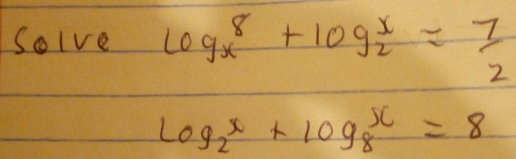 Solve logₓ⁸ + log₂ˣ = 7/2
log₂ˣ + log₈ˣ = 8